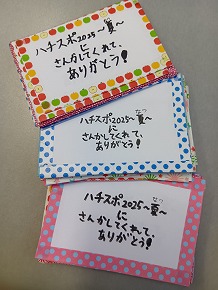 ハチスポ2025～夏～
に
さんかしてくれて、
ありがとう!
なつ
ハチスポ2025～夏～
に
さんかしてくれて、
ありがとう!
なつ
ハチスポ2025～夏～
に
さんかしてくれて、
ありがとう!